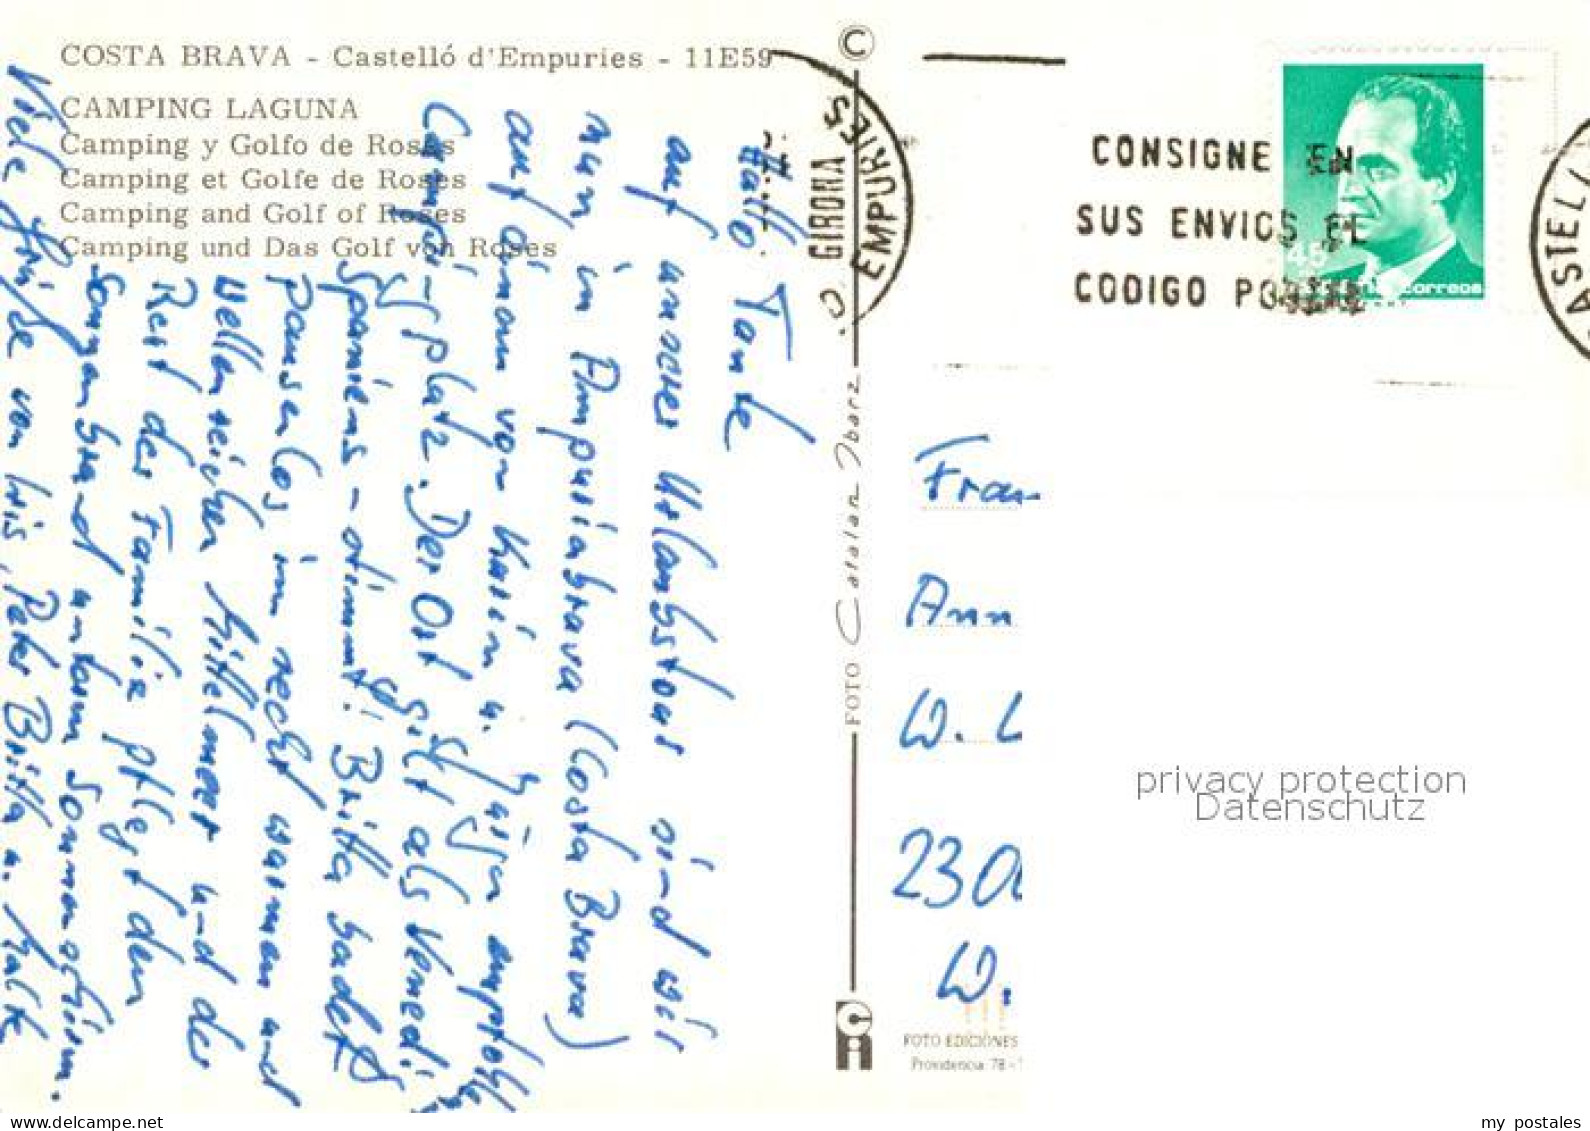 COSTA BRAVA - Castelló d'Empuries - 11E59
CAMPING LAGUNA
Camping y Golfo de Roses
Camping et Golfe de Roses
Camping and Golf of Roses
Camping und Das Golf von Roses
Hallo Tante
auf unserer Urlaubstour sind wir
nun in Ampuriabrava (Costa Brava)
auf einem von Karin u. empfohle
Campingplatz. Der Ort gilt als Venedig
Spaniens - stimmt! Britta badet
pausenlos im recht warmen und
wellenreichen Mittelmeer und der
Rest der Familie pflegt den
Sonnenbrand unterm Sonnenschirm.
Viele Grüße von Iris, Peter Britta u. Malte
GIRONA
EMPURIES
©
CONSIGNE EN
SUS ENVIOS EL
CODIGO POSTAL
45
correos
CASTELL
FOTO Catalan Ibarz
Frau
Ann
W. L
230
W.
FOTO EDICIONES
Providencia 78 -
privacy protection
Datenschutz
my postales